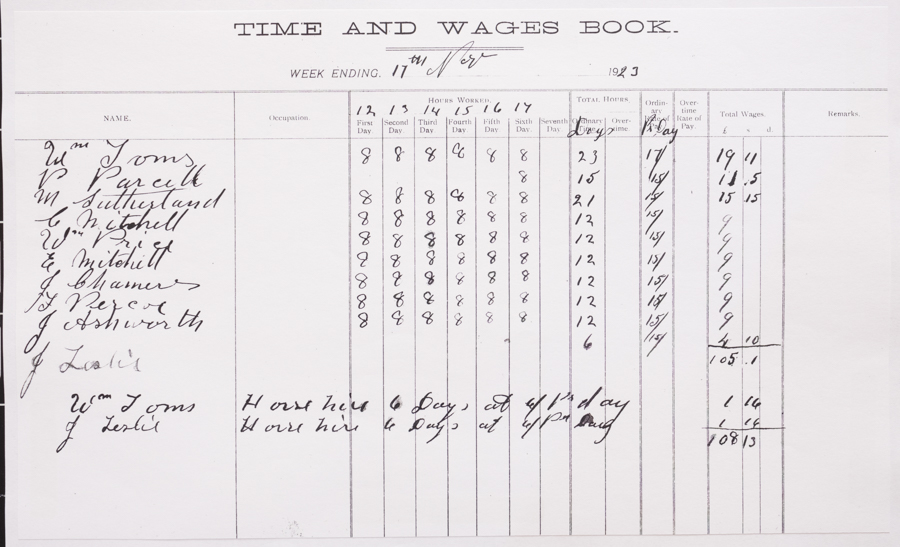 TIME AND WAGES BOOK.
WEEK ENDING, 17th Nov 1923
NAME. Occupation. HOURS WORKED. TOTAL HOURS Ordinary Rate of Pay Overtime Rate of Pay Total Wages. Remarks.
12 13 14 15 16 17 Days Day
First Day. Second Day. Third Day. Fourth Day. Fifth Day. Sixth Day. Seventh Day. Ordinary Time. Overtime. £ s. d.
Wm Toms 8 8 8 8 8 8 23 17/ 19 11
P Parcell 8 15 15/ 11 .5
M Sutherland 8 8 8 8 8 8 21 15/ 15 15
C Mitchell 8 8 8 8 8 8 12 15/ 9
Wm Price 8 8 8 8 8 8 12 15/ 9
E Mitchell 8 8 8 8 8 8 12 15/ 9
J Chamers 8 8 8 8 8 8 12 15/ 9
F Percoe 8 8 8 8 8 8 12 15/ 9
J Ashworth 8 8 8 8 8 8 12 15/ 9
J Leslie 6 15/ 4 10
105 .1
Wm Toms Horse hire 6 Days at 6/ Pr day 1 16
J Leslie Horse hire 6 Days at 6/ Pr Day 1 16
108 13